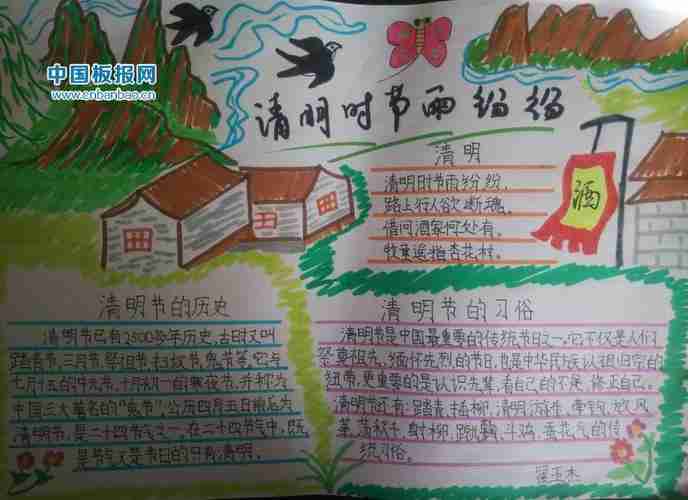 中国板报网
www.cnbanbao.cn
清明时节雨纷纷
清明
清明时节雨纷纷，
路上行人欲断魂。
借问酒家何处有，
牧童遥指杏花村。
酒
清明节的历史
清明节已有2500多年历史，古时又叫
踏青节、三月节、祭祖节、扫坟节、鬼节等，它与
七月十五的中元节、十月初一的寒衣节，并称为
中国三大著名的“鬼节”，公历四月五日前后为
清明节，是二十四节气之一，在二十四节气中，既
是节气又是节日的只有清明。
清明节的习俗
清明节是中国最重要的传统节日之一，它不仅是人们
祭奠祖先，缅怀先烈的节日，也是中华民族认祖归宗的
纽带，更重要的是认识先辈，看自己的不足，修正自己。
清明节还有：踏青、插柳、清明游佳、牵钩、放风
筝、荡秋千、射柳、蹴鞠、斗鸡、蚕花气的传
统习俗。